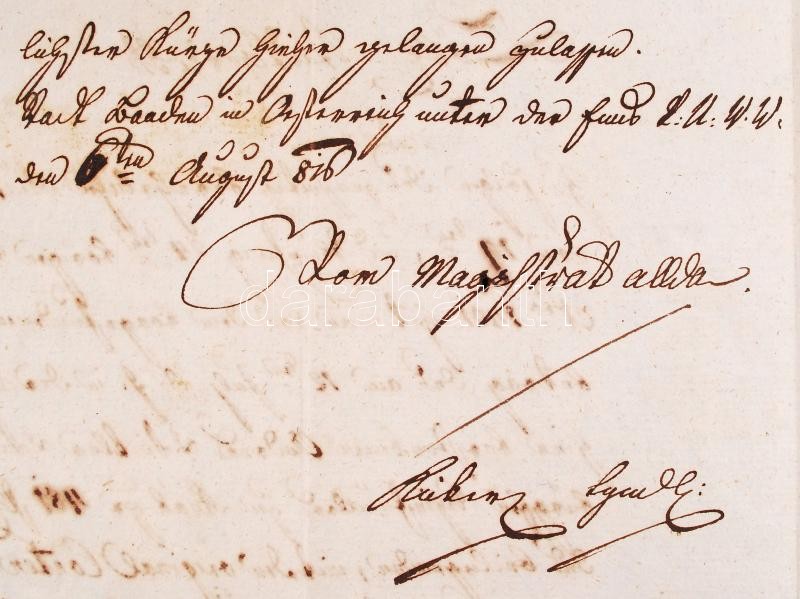 lichster Kürze hieher gelangen zulassen.
Stadt Baaden in Oesterreich unter der Enns V. U. W. W.
den 6ten August 816
Vom Magistrat allda.
darabanth